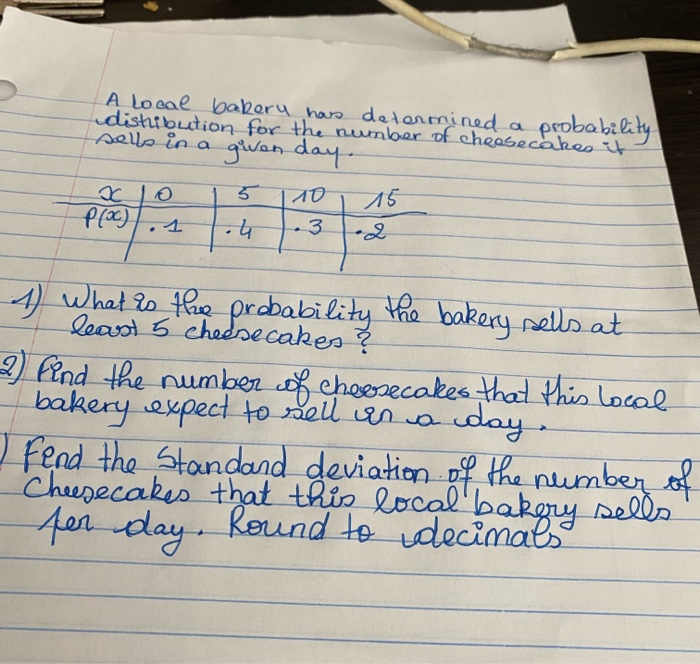 A local bakery has determined a probability
distribution for the number of cheesecakes it
sells in a given day.
x 0 5 10 15
P(x) .1 .4 .3 .2
1) What is the probability the bakery sells at
least 5 cheesecakes?
2) Find the number of cheesecakes that this local
bakery expect to sell in a day.
) Fend the Standard deviation of the number of
Cheesecakes that this local bakery sells
per day. Round to decimals